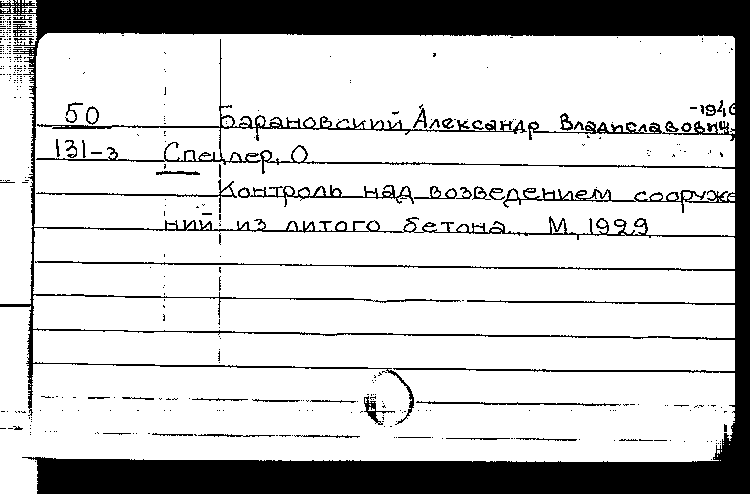 -1946
50 Барановский, Александр Владиславович,
131-з Спецлер, О.
Контроль над возведением сооруже
ний из литого бетона. М., 1929